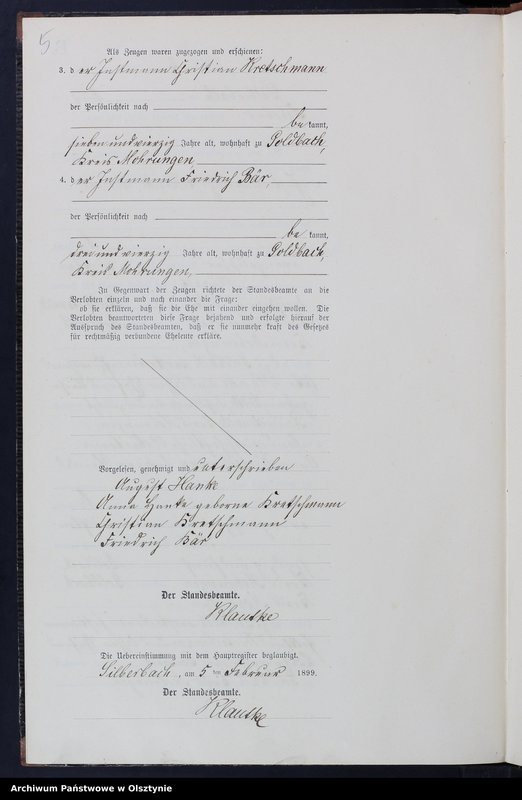 5
Als Zeugen waren zugezogen und erschienen:
3. der Instmann Christian Kretschmann
der Persönlichkeit nach
be kannt,
siebenundvierzig Jahre alt, wohnhaft zu Goldbach,
Kreis Mohrungen
4. der Instmann Friedrich Bär,
der Persönlichkeit nach
be kannt,
dreiundvierzig Jahre alt, wohnhaft zu Goldbach,
Kreis Mohrungen,
In Gegenwart der Zeugen richtete der Standesbeamte an die
Verlobten einzeln und nach einander die Frage:
ob sie erklären, daß sie die Ehe mit einander eingehen wollen. Die
Verlobten beantworteten diese Frage bejahend und erfolgte hierauf der
Ausspruch des Standesbeamten, daß er sie nunmehr kraft des Gesetzes
für rechtmäßig verbundene Eheleute erkläre.
Vorgelesen, genehmigt und unterschrieben
August Hanke
Anna Hanke geborne Kretschmann
Christian Kretschmann
Friedrich Bär
Der Standesbeamte.
Klautke
Die Uebereinstimmung mit dem Hauptregister beglaubigt.
Silberbach, am 5 ten Februar 1899.
Der Standesbeamte.
Klautke
Archiwum Państwowe w Olsztynie